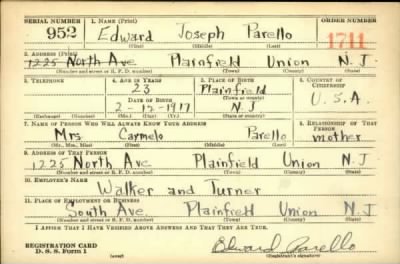 SERIAL NUMBER 1. NAME (Print) ORDER NUMBER
952 Edward Joseph Parello 1711
(First) (Middle) (Last)
2. ADDRESS (Print)
1225 North Ave Plainfield Union N.J.
(Number and street or R. F. D. number) (Town) (County) (State)
3. TELEPHONE 4. AGE IN YEARS 5. PLACE OF BIRTH 6. COUNTRY OF CITIZENSHIP
23 Plainfield
DATE OF BIRTH (Town or county)
2-15-1917 N.J. U.S.A.
(Exchange) (Number) (Mo.) (Day) (Yr.) (State or country)
7. NAME OF PERSON WHO WILL ALWAYS KNOW YOUR ADDRESS 8. RELATIONSHIP OF THAT PERSON
Mrs Carmelo Parello mother
(Mr., Mrs., Miss) (First) (Middle) (Last)
9. ADDRESS OF THAT PERSON
1225 North Ave Plainfield Union N.J
(Number and street or R. F. D. number) (Town) (County) (State)
10. EMPLOYER'S NAME
Walker and Turner
11. PLACE OF EMPLOYMENT OR BUSINESS
South Ave. Plainfield Union N.J
(Number and street or R. F. D. number) (Town) (County) (State)
I AFFIRM THAT I HAVE VERIFIED ABOVE ANSWERS AND THAT THEY ARE TRUE.
REGISTRATION CARD Edward Parello
D. S. S. Form 1 (Registrant's signature)